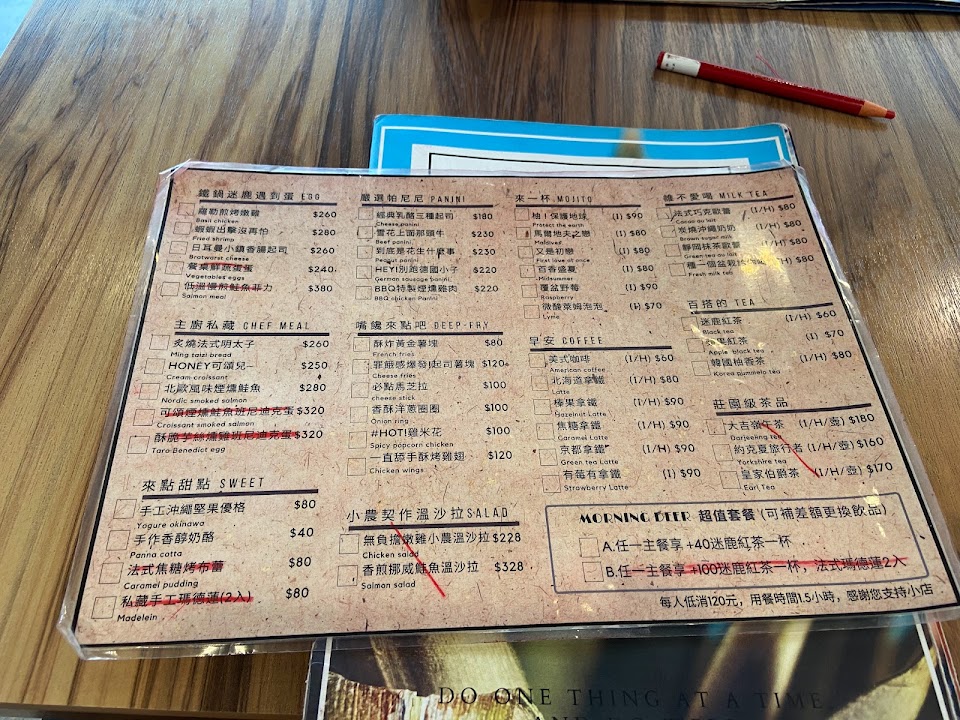 鐵鍋迷鹿遇到蛋 EGG
羅勒煎烤嫩雞 $260
Basil chicken
蝦蝦出擊沒再怕 $280
Fried shrimp
日耳曼小鎮香腸起司 $260
Bratwarst cheese
餐桌鮮蔬蛋蛋 $240
Vegetables eggs
低溫慢煎鮭魚菲力 $380
Salmon meal
主廚私藏 CHEF MEAL
炙燒法式明太子 $260
Ming taizi bread
HONEY可頌兒 $250
Cream croissant
北歐風味煙燻鮭魚 $280
Nordic smoked salmon
可頌煙燻鮭魚班尼迪克蛋 $320
Croissant smoked salmon
酥脆芋絲燻雞班尼迪克蛋 $320
Taro Benedict egg
來點甜點 SWEET
手工沖繩堅果優格 $80
Yogure okinawa
手作香醇奶酪 $40
Panna cotta
法式焦糖烤布蕾 $80
Caramel pudding
私藏手工瑪德蓮(2入) $80
Madelein
嚴選帕尼尼 PANINI
經典乳酪三種起司 $180
Cheese panini
雪花上面那頭牛 $230
Beef panini
到底是花生什麼事 $230
Peanut panini
HEY!別跑德國小子 $220
German sausage Panini
BBQ特製煙燻雞肉 $220
BBQ chicken Panini
嘴饞來點吧 DEEP-FRY
酥炸黃金薯塊 $80
French fries
罪餓感爆發!起司薯塊 $120
Cheese fries
必點馬芝拉 $100
cheese stick
香酥洋蔥圈圈 $100
Onion ring
#HOT!雞米花 $100
Spicy popcorn chicken
一直舔手酥烤雞翅 $120
Chicken wings
小農契作溫沙拉SALAD
無負擔嫩雞小農溫沙拉 $228
Chicken salad
香煎挪威鮭魚溫沙拉 $328
Salmon salad
來一杯 MOJITO
柚!保護地球 (I) $90
Protect the earth
馬爾地夫之戀 (I) $80
Maldived
又是初戀 (I) $80
First love of once
百香盛夏 (I) $80
Midsummer
覆盆野莓 (I) $90
Raspberry
微酸萊姆泡泡 (I) $70
Lyme
早安 COFFEE
美式咖啡 (I/H) $60
American coffee
北海道拿鐵 (I/H) $80
Latte
榛果拿鐵 (I/H) $90
Hazelnut Latte
焦糖拿鐵 (I/H) $90
Caramel Latte
京都拿鐵 (I/H) $90
Green tea Latte
有莓有拿鐵 (I) $90
Strawberry Latte
誰不愛喝 MILK TEA
法式巧克歐蕾 (I/H) $80
Cacao au lait
炭燒沖繩奶奶 (I/H) $80
Brown sugar milk
靜岡抹茶歐蕾 (I/H) $80
Green tea au lait
種一個盆栽 (I/H) $80
Fresh milk tea
百搭的 TEA
迷鹿紅茶 (I/H) $60
Black tea
果紅茶 (I) $70
Apple black tea
韓國柚香茶 (I/H) $80
Korea pummelo tea
莊園級茶品
大吉嶺午茶 (I/H/壺) $180
Darjeeling tea
約克夏旅行者 (I/H/壺) $160
Yorkshire tea
皇家伯爵茶 (I/H/壺) $170
Earl Tea
MORNING DEER 超值套餐 (可補差額更換飲品)
A.任一主餐享 +40迷鹿紅茶一杯
B.任一主餐享 +100迷鹿紅茶一杯，法式瑪德蓮2入
每人低消120元，用餐時間1.5小時，感謝您支持小店
DO ONE THING AT A TIME